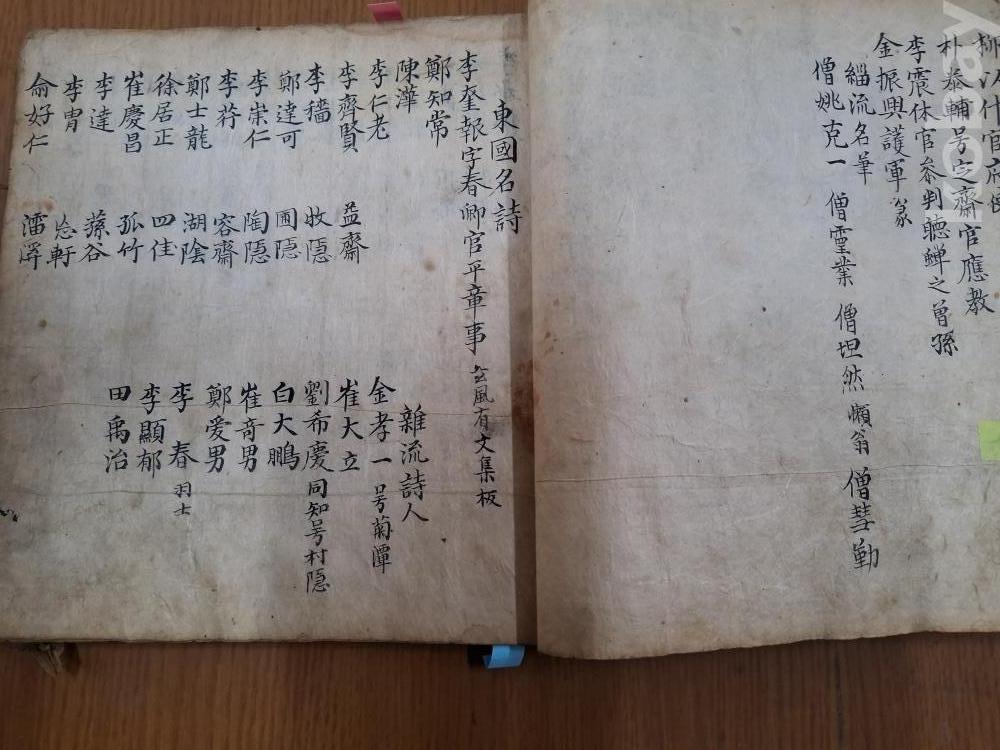 柳 什官府
朴泰輔号定齋官應教
李震休官叅判聽蟬之曾孫
金振興護軍篆
緇流名筆
僧姚克一 僧霊業 僧坦然 懶翁 僧彗勤
東國名詩
李奎報字春卿官平章事 玄風有文集板
鄭知常
陳澕
李仁老
李齊賢 益齋
李穡 牧隠
鄭達可 圃隠
李崇仁 陶隠
李荇 容齋
鄭士龍 湖陰
徐居正 四佳
崔慶昌 孤竹
李達 蓀谷
李冑 忘軒
兪好仁
雜流詩人
金孝一 号菊潭
崔大立
劉希慶 同知号村隠
白大鵬
崔奇男
鄭爱男
李春 羽士
李顯郁
田禹治